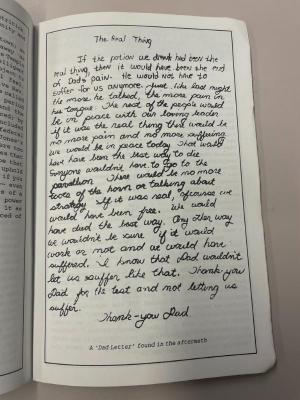 The Real Thing
If the potion we drank had been the
real thing, then it would have been the end
of Dad's pain. He would not have to
suffer for us anymore. Just like last night
the more he talked, the more pain in
his tongue. The rest of the people would
be in peace with our loving leader.
If it was the real thing there would be
no more pain and no more suffering.
We would be in peace today. That would
have been the best way to die
Everyone wouldn't have to go to the
pavallion. There would be no more
toots of the horn or talking about
strategy. If it was real, ofcourse we
would have been free. We would
have died the best way. Any other way
we wouldn't be sure if it would
work or not and we would have
suffered. I know that Dad wouldn't
let us suffer like that. Thank-you
Dad for the test and not letting us
suffer.
Thank-you Dad
A 'Dad Letter' found in the aftermath